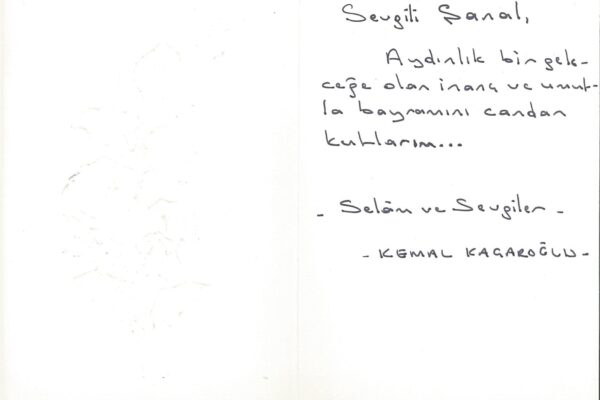 Sevgili Şanal,
Aydınlık bir gele-
ceğe olan inanç ve umut-
la bayramını candan
kutlarım...
- Selâm ve Sevgiler -
- KEMAL KAÇAROĞLU -